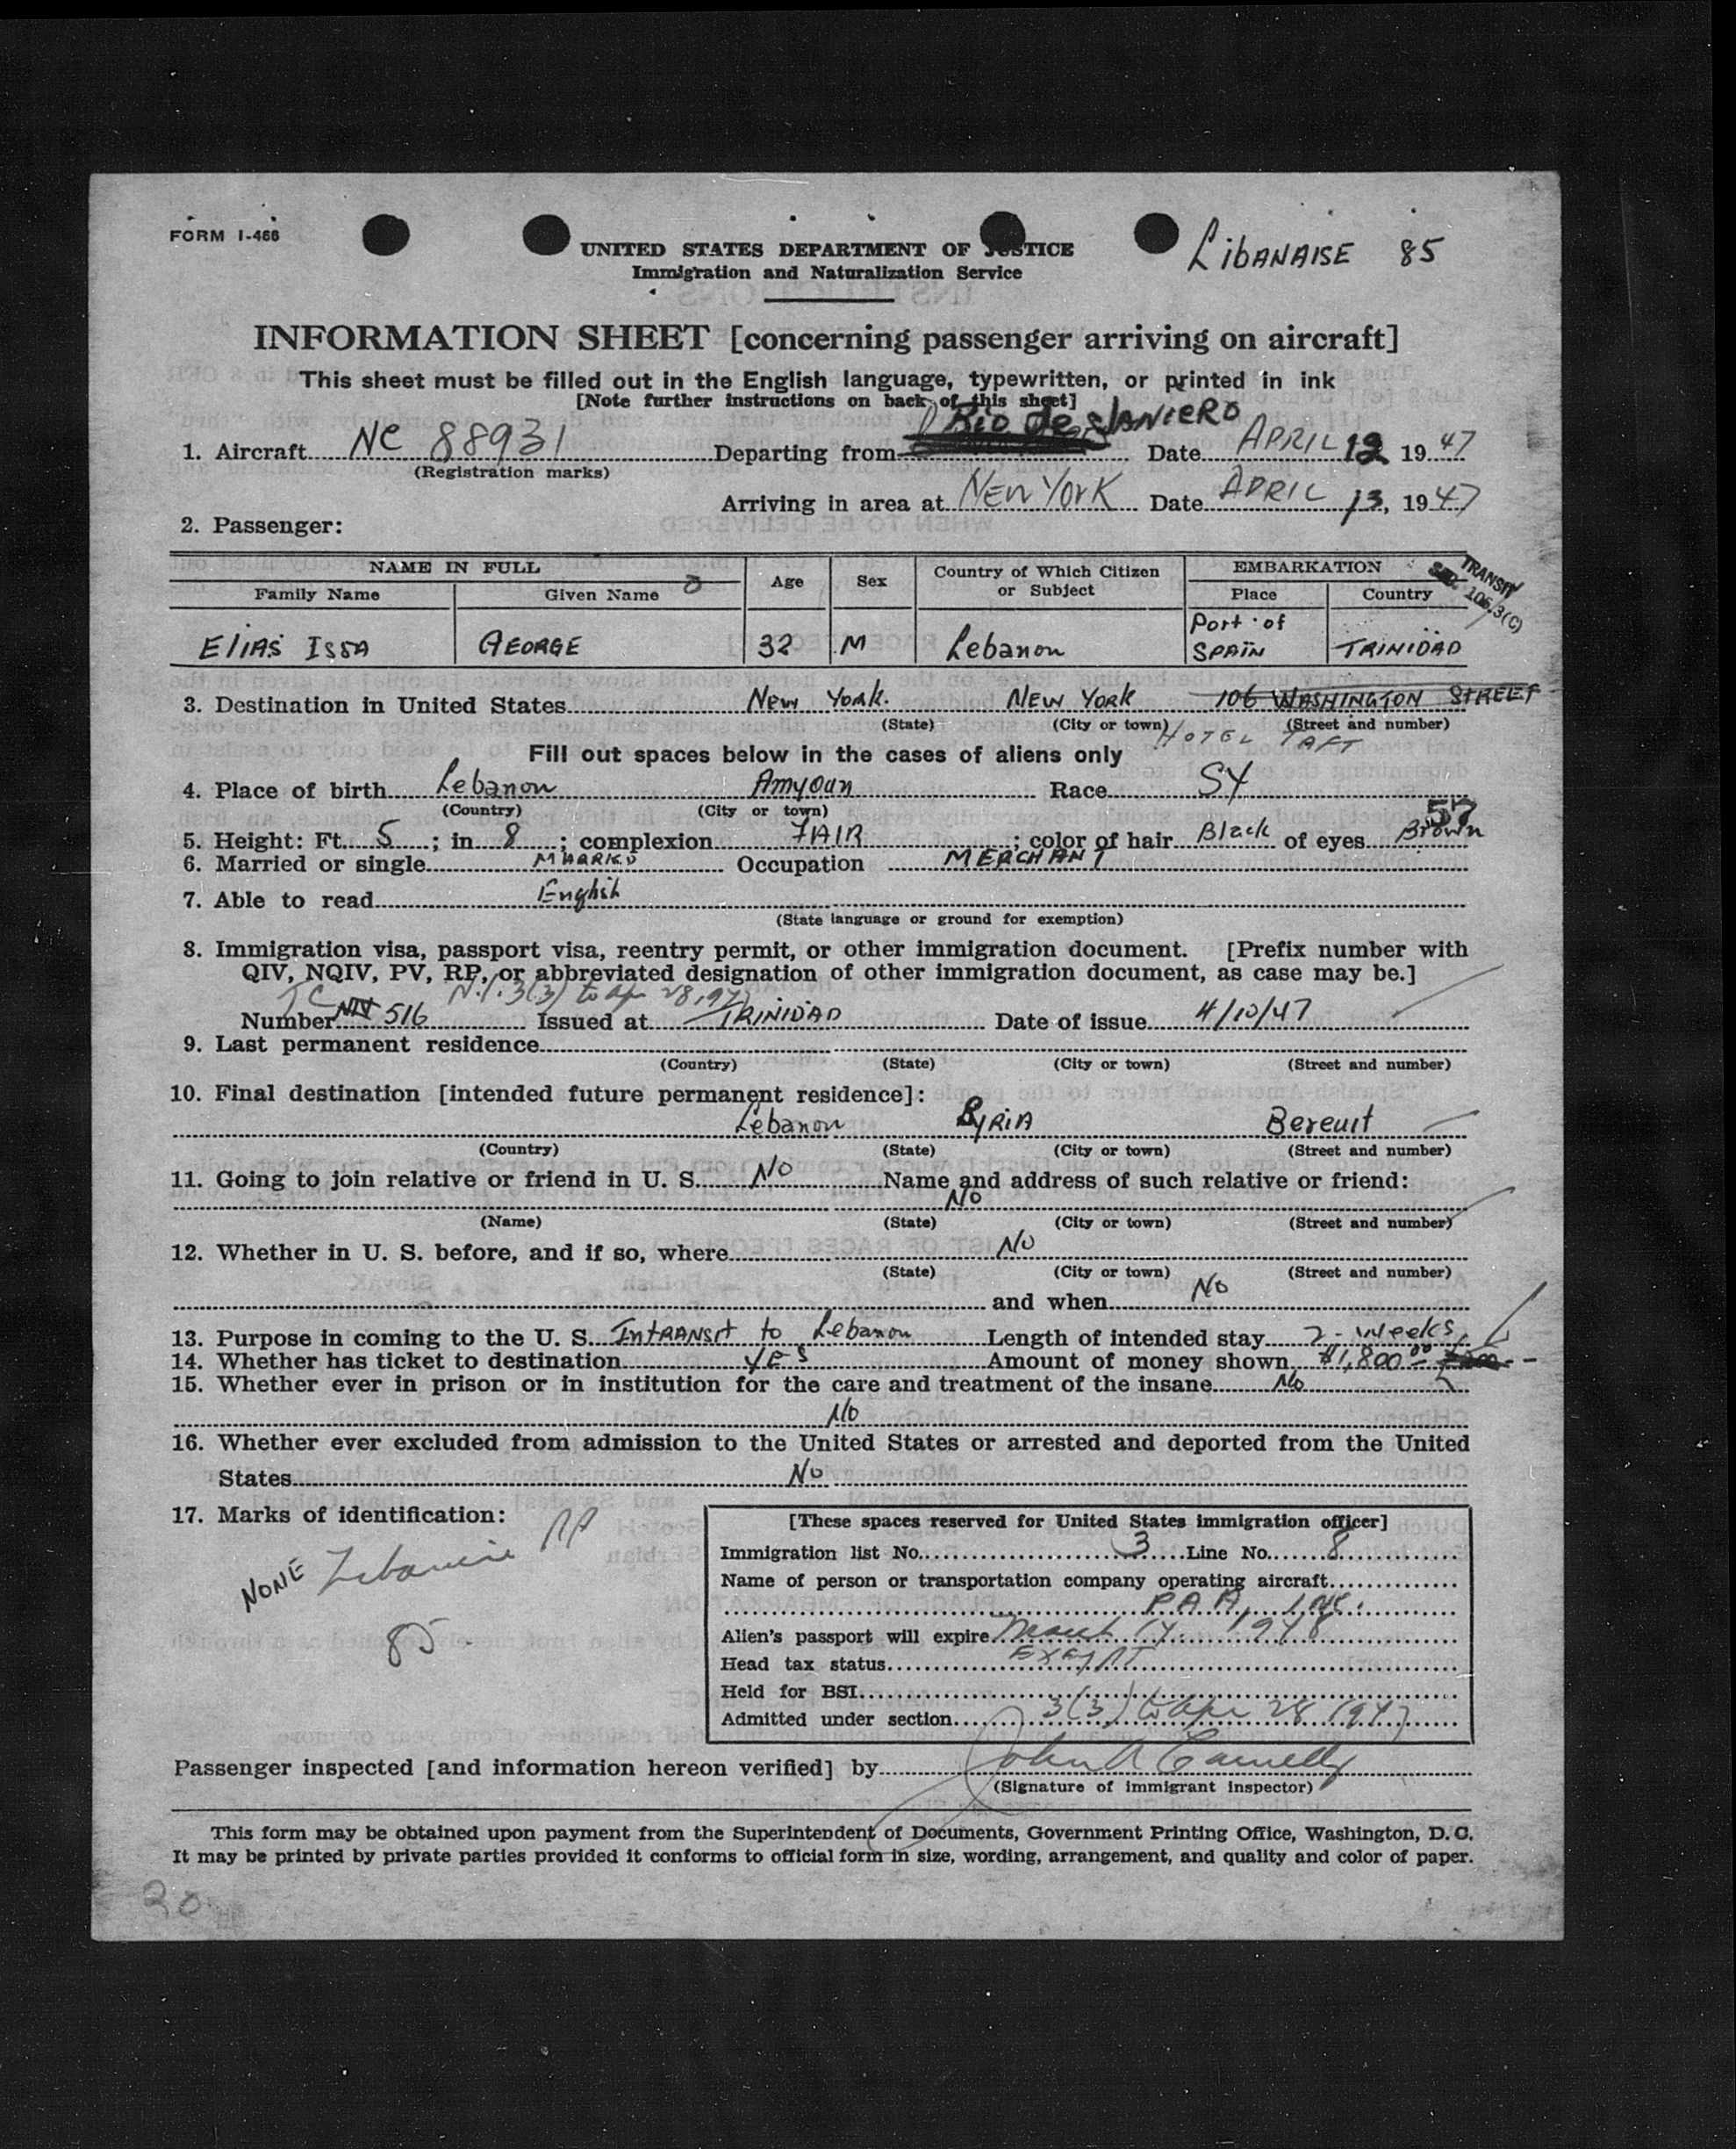 FORM I-466
UNITED STATES DEPARTMENT OF JUSTICE
Immigration and Naturalization Service
LibANAISE 85
INFORMATION SHEET [concerning passenger arriving on aircraft]
This sheet must be filled out in the English language, typewritten, or printed in ink
[Note further instructions on back of this sheet]
Rio de JANIERO
1. Aircraft NC 88931 Departing from Date APRIL 12 19 47
(Registration marks)
Arriving in area at NEW YORK Date APRIL 13, 19 47
2. Passenger:
NAME IN FULL Age Sex Country of Which Citizen or Subject EMBARKATION
Family Name Given Name Place Country
TRANSIT
SEC. 106.3(C)
ELIAS ISSA GEORGE 32 M Lebanon Port of SPAIN TRINIDAD
3. Destination in United States NEW YORK. NEW YORK 106 WASHINGTON STREET
(State) (City or town) (Street and number)
HOTEL TAFT
Fill out spaces below in the cases of aliens only
4. Place of birth Lebanon Amyoun Race SY
(Country) (City or town)
57
5. Height: Ft. 5; in 8; complexion FAIR; color of hair Black of eyes Brown
6. Married or single Occupation MERCHANT
7. Able to read English
(State language or ground for exemption)
8. Immigration visa, passport visa, reentry permit, or other immigration document. [Prefix number with
QIV, NQIV, PV, RP, or abbreviated designation of other immigration document, as case may be.]
3(3) to Apr 28, 1947
Number 516 Issued at TRINIDAD Date of issue 4/10/47
9. Last permanent residence
(Country) (State) (City or town) (Street and number)
10. Final destination [intended future permanent residence]:
Lebanon SYRIA Bereuit
(Country) (State) (City or town) (Street and number)
11. Going to join relative or friend in U. S. No Name and address of such relative or friend:
No
(Name) (State) (City or town) (Street and number)
12. Whether in U. S. before, and if so, where No
(State) (City or town) (Street and number)
and when No
13. Purpose in coming to the U. S. INTRANSIT to Lebanon Length of intended stay 2 - weeks
14. Whether has ticket to destination yes Amount of money shown $1,800.00
15. Whether ever in prison or in institution for the care and treatment of the insane No
No
16. Whether ever excluded from admission to the United States or arrested and deported from the United
States No
17. Marks of identification:
NONE
85
[These spaces reserved for United States immigration officer]
Immigration list No. 3 Line No. 8
Name of person or transportation company operating aircraft
P.A.A. INC.
Alien's passport will expire March 17 1948
Head tax status EXEMPT
Held for BSI
Admitted under section 3(3) to Apr 28 1947
Passenger inspected [and information hereon verified] by John A
(Signature of immigrant inspector)
This form may be obtained upon payment from the Superintendent of Documents, Government Printing Office, Washington, D. C.
It may be printed by private parties provided it conforms to official form in size, wording, arrangement, and quality and color of paper.